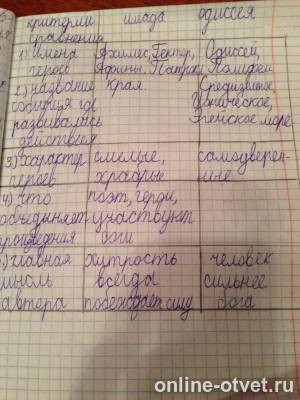 критерии илиада одиссея
сравнения
1) Имена Ахиллес, Гектор, Одиссей,
героев Афины, Патрокл Полифем
2) название края. Средиземное,
события где Ионическое,
развивались Эгейское море.
действия
3) характер смелые, самоуверен-
героев храбрые ные
4) что поэт, герои,
объединяет участвуют
произведения боги
5) главная хитрость человек
мысль всегда сильнее
автора побеждает силу бога
online-otvet.ru